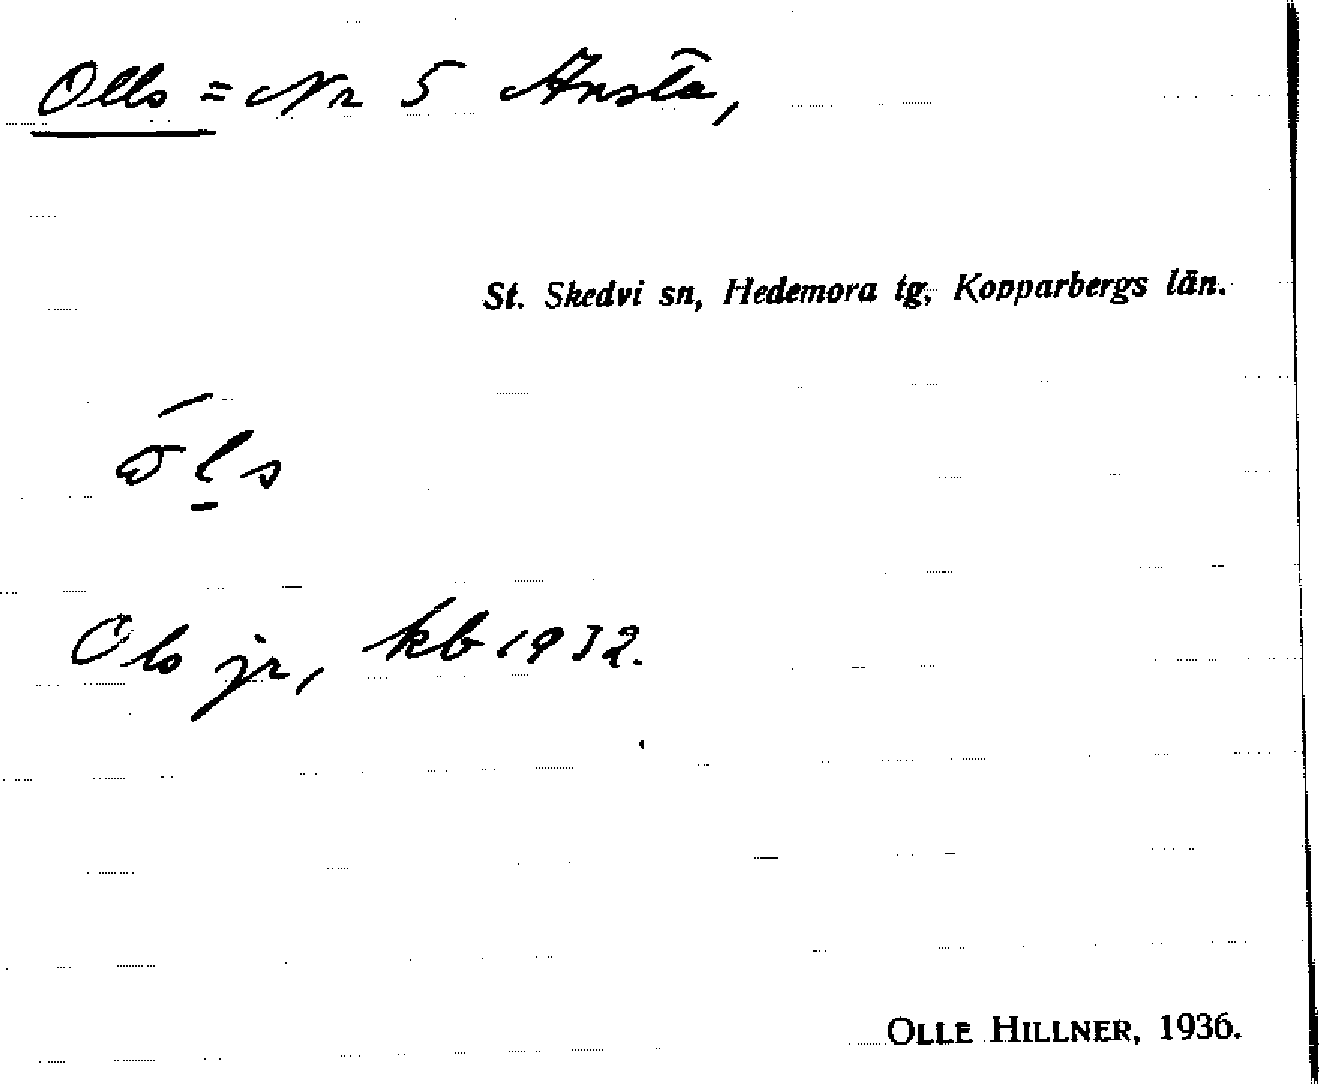 Olls = Nr 5 Ansta,
St. Skedvi sn, Hedemora tg, Kopparbergs län.
Ols jr, kb 1932.
OLLE HILLNER, 1936.